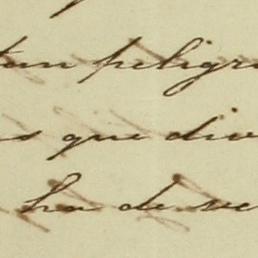 tan peligr
s que div
ha de ve